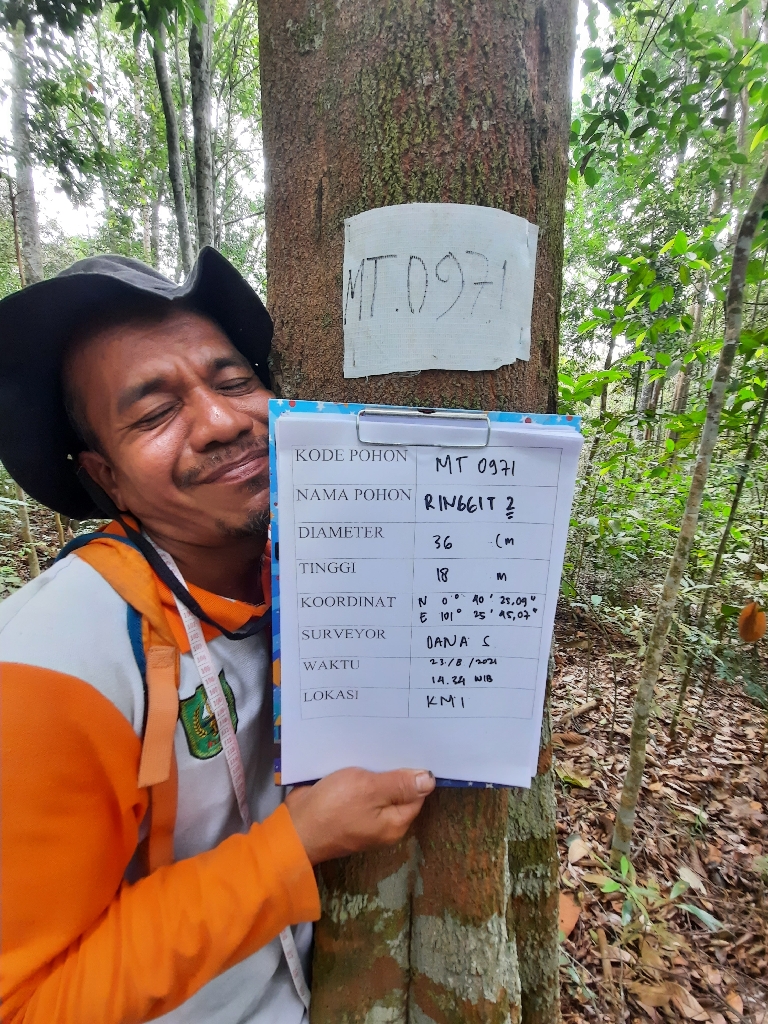 MT.0971
KODE POHON MT 0971
NAMA POHON RINGGIT 2
DIAMETER 36 Cm
TINGGI 18 m
KOORDINAT N 0° 40' 25,09"
E 101° 25' 45,07"
SURVEYOR DANA S
WAKTU 23/8/2021
14.34 WIB
LOKASI KM 1